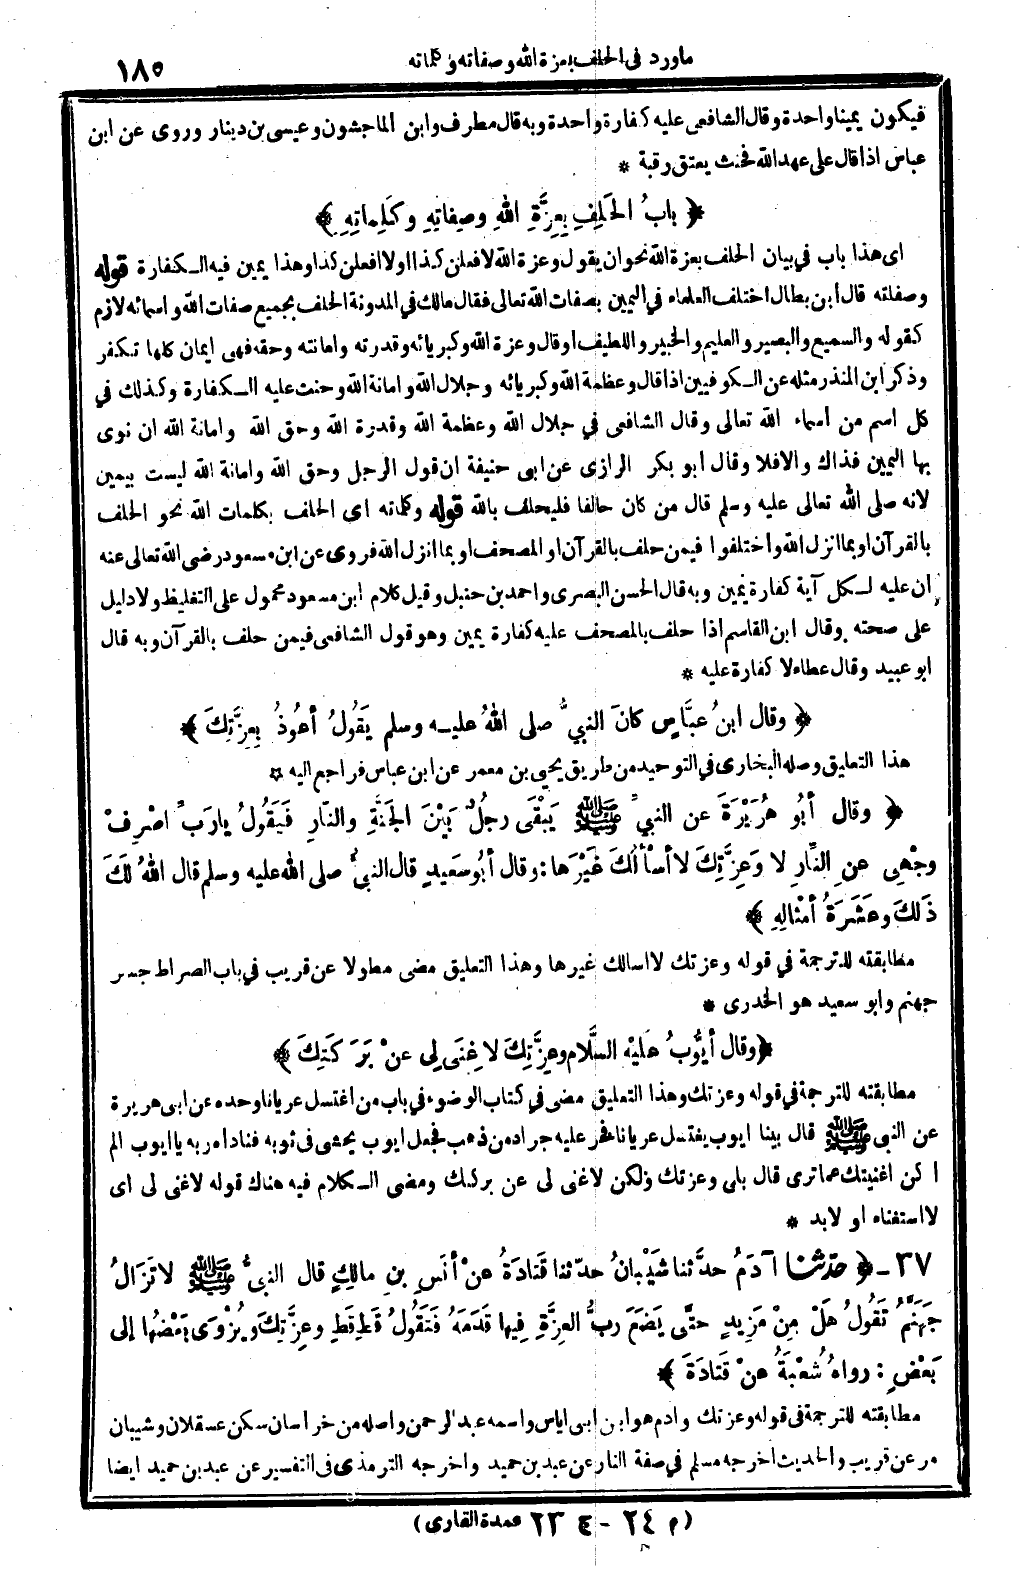 ماورد فى الحلف بعزة الله وصفاته وكلماته ١٨٥
فيكون يمينا واحدة وقال الشافعى عليه كفارة واحدة وبه قال مطرف وابن الماجشون وعيسى بن دينار وروى عن ابن
عباس اذا قال على عهد الله فحنث يعتق رقبة *
﴿ بابُ الحَلِفِ بِعِزَّةِ اللهِ وصِفاتِهِ وكَلِماتِهِ ﴾
اى هذا باب في بيان الحلف بعزة الله نحو ان يقول وعزة الله لافعلن كذا اولا افعلن كذا وهذا يمين فيه الـكفارة قوله
وصفاته قال ابن بطال اختلف العلماء في اليمين بصفات الله تعالى فقال مالك في المدونة الحلف بجميع صفات الله واسمائه لازم
كقوله والسميع والبصير والعليم والخبير واللطيف اوقال وعزة الله وكبريائه وقدرته وامانته وحقه فهى ايمان كلها تكفر
وذكر ابن المنذر مثله عن الـكوفيين اذا قال وعظمة الله وكبريائه وجلال الله وامانة الله وحنث عليه الـكفارة وكذلك في
كل اسم من اسماء الله تعالى وقال الشافعى في جلال الله وعظمة الله وقدرة الله وحق الله وامانة الله ان نوى
بها اليمين فذاك والافلا وقال ابو بكر الرازى عن ابى حنيفة ان قول الرجل وحق الله وامانة الله ليست بيمين
لانه صلى الله تعالى عليه وسلم قال من كان حالفا فليحلف بالله قوله وكلماته اى الحلف بكلمات الله نحو الحلف
بالقرآن او بما انزل الله واختلفوا فيمن حلف بالقرآن او المصحف او بما انزل الله فروى عن ابن مسعود رضى الله تعالى عنه
ان عليه لـكل آية كفارة يمين وبه قال الحسن البصرى واحمد بن حنبل وقيل كلام ابن مسعود محمول على التغليظ ولا دليل
على صحته وقال ابن القاسم اذا حلف بالمصحف عليه كفارة يمين وهو قول الشافعى فيمن حلف بالقرآن وبه قال
ابو عبيد وقال عطاء لا كفارة عليه *
﴿ وقال ابنُ عبَّاسٍ كانَ النبيُّ صلى اللهُ عليـه وسلم يَقُولُ أعُوذُ بِعِزَّتِكَ ﴾
هذا التعليق وصله البخارى في التوحيد من طريق يحيى بن معمر عن ابن عباس فراجع اليه *
﴿ وقال أبُو هُرَيْرَةَ عن النبيِّ ﷺ يَبْقَى رجُلٌ بَيْنَ الجَنَّةِ والنَّارِ فَيَقُولُ يارَبِّ اصْرِفْ
وجْهِى عنِ النَّارِ لا وَعِزَّتِكَ لا أسْألُكَ غَيْرَها : وقال أبُو سَعِيدٍ قال النبيُّ صلى الله عليه وسلم قال اللهُ لَكَ
ذَلِكَ وعَشَرَةُ أمْثالِهِ ﴾
مطابقته للترجمة في قوله وعزتك لا اسالك غيرها وهذا التعليق مضى مطولا عن قريب في باب الصراط جسر
جهنم وابو سعيد هو الخدرى *
﴿ وقال أيُّوبُ عَلَيْهِ السَّلام وعِزَّتِكَ لا غِنَى لِى عنْ بَرَكَتِكَ ﴾
مطابقته للترجمة في قوله وعزتك وهذا التعليق مضى في كتاب الوضوء في باب من اغتسل عريانا وحده عن ابى هريرة
عن النبي ﷺ قال بينا ايوب يغتسل عريانا فخر عليه جراد من ذهب فجعل ايوب يحثى فى ثوبه فناداه ربه يا ايوب الم
اكن اغنيتك عما ترى قال بلى وعزتك ولكن لاغنى لى عن بركتك ومضى الـكلام فيه هناك قوله لاغنى لى اى
لا استغناء او لابد *
٣٧ - ﴿ حدّثنا آدَمُ حدَّثنا شَيْبانُ حدّثنا قَتادَةُ عنْ أنَسِ بنِ مالِكٍ قال النبيُّ ﷺ لا تَزَالُ
جَهَنَّمُ تَقُولُ هَلْ مِنْ مَزِيدٍ حتَّى يَضَعَ ربُّ العِزَّةِ فِيها قَدَمَهُ فَتَقُولُ قَطْ قَطْ وعِزَّتِكَ ويُزْوَى بَعْضُها إلى
بَعْضٍ : رواهُ شُعْبَةُ عنْ قَتادَةَ ﴾
مطابقته للترجمة فى قوله وعزتك وادم هو ابن ابى اياس واسمه عبد الرحمن واصله من خراسان سكن عسقلان وشيبان
مر عن قريب والحديث اخرجه مسلم في صفة النار عن عبد بن حميد واخرجه الترمذى فى التفسير عن عبد بن حميد ايضا
(م ٢٤ - ج ٢٣ عمدة القارى)